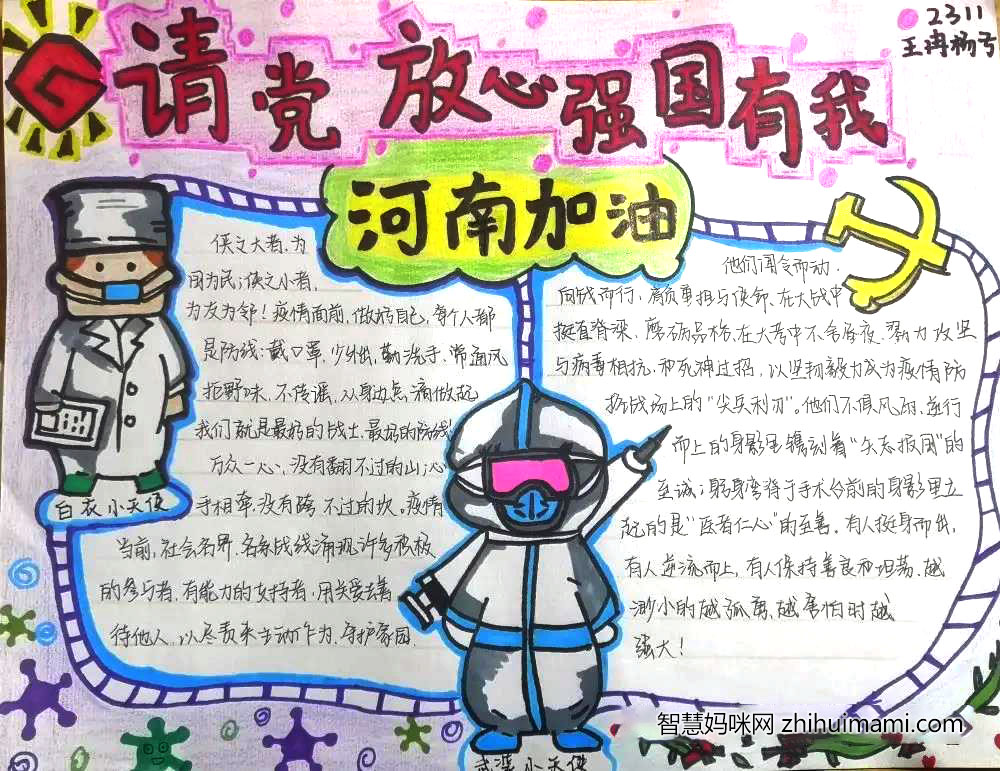 2311
请党放心强国有我
河南加油
侠之大者,为
国为民;侠之小者,
为友为邻!疫情面前,做好自己,每个人都
是防线:戴口罩,少外出,勤洗手,常通风
拒野味,不传谣,从身边点滴做起
我们就是最好的战士,最好的防线!
万众一心,没有翻不过的山;心
手相牵,没有跨不过的坎。疫情
当前,社会各界、各条战线涌现许多积极
的参与者,有能力的支持者,用关爱去善
待他人,以尽责来主动作为,守护家园
白衣小天使
他们闻令而动,
向战而行,肩负重担与使命,在大战中
挺直脊梁,磨砺品格,在大考中不舍昼夜,勠力攻坚
与病毒相抗,和死神过招,以坚韧毅力成为疫情防
控战场上的“尖兵利刃”。他们不惧风雨,逆行
而上的身影里镌刻着“矢志报国”的
至诚;躬身弯脊于手术台前的身影里立
起的是“医者仁心”的至善。有人挺身而出,
有人逆流而上,有人保持善良和坦荡,越
渺小的越孤勇,越害怕时越
强大!
小天使
智慧妈咪网 zhihuimami.com